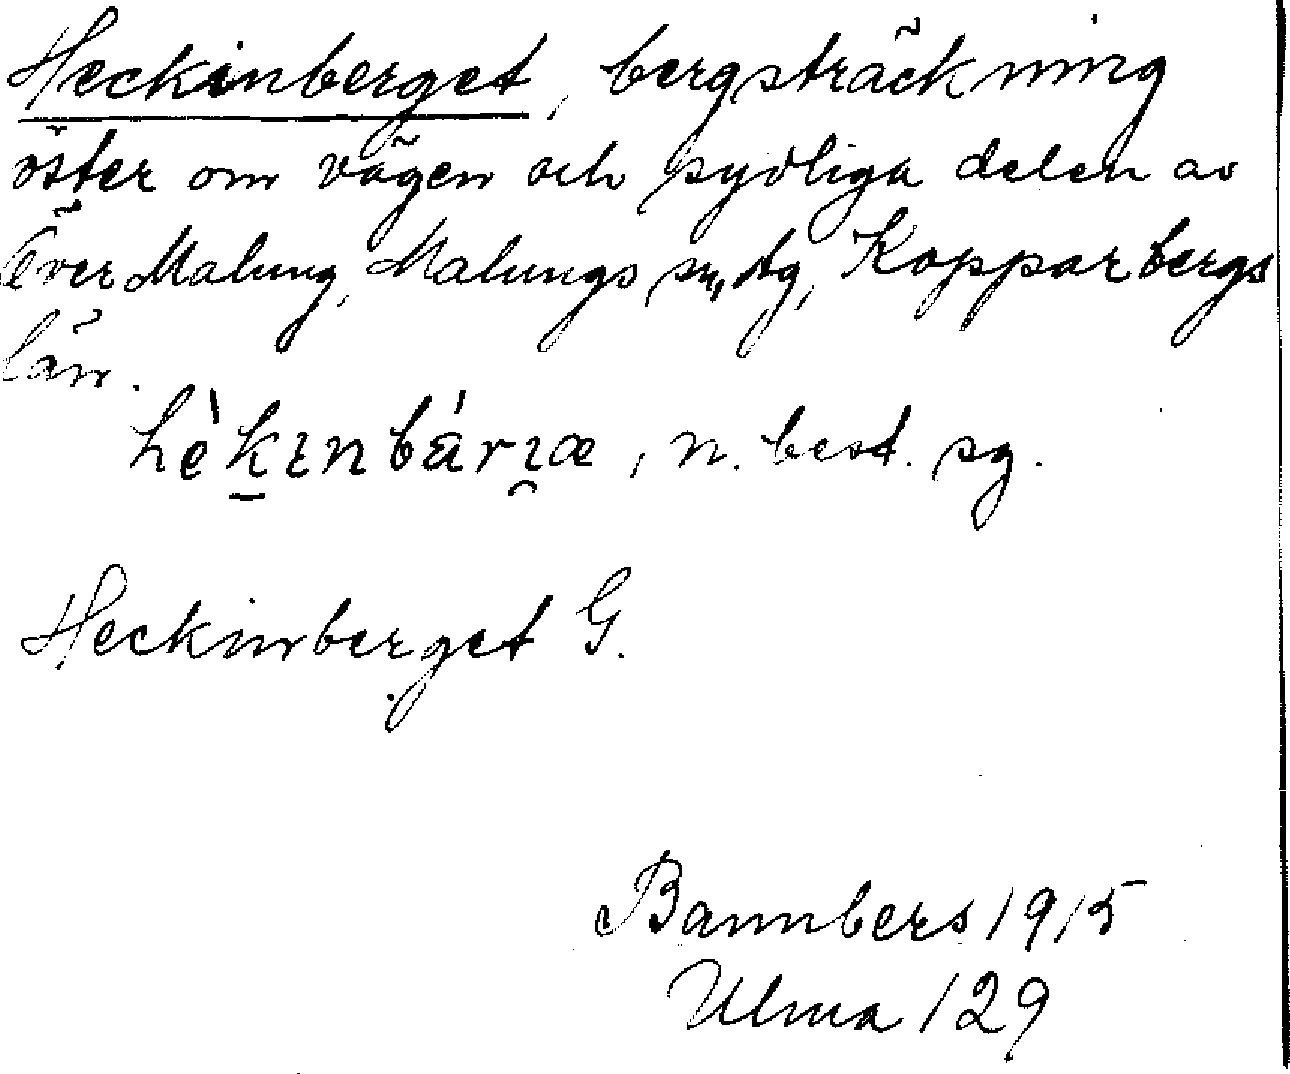 Heckinberget, bergsträckning
öster om vägen och sydliga delen av
Över Malung, Malungs sn, Kopparbergs
län.
hèkinbáriæ, n. best. sg.
Heckinberget G.
Bannbers 1915
Ulma 129